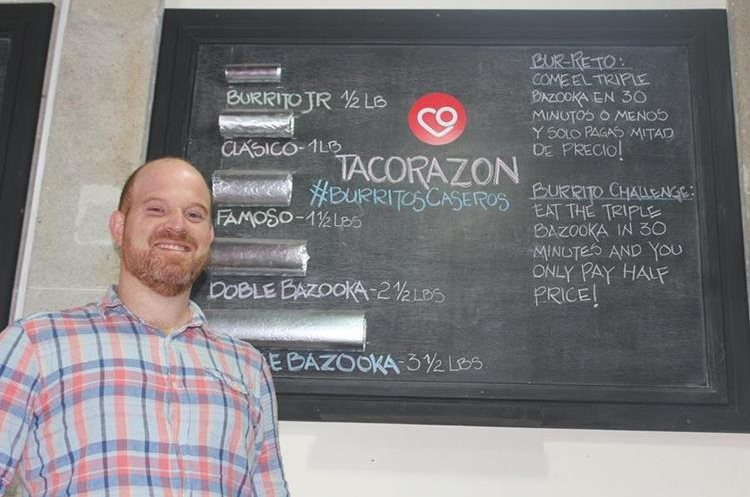 BURRITO JR 1/2 LB
CLÁSICO - 1LB
FAMOSO - 1 1/2 LBS
DOBLE BAZOOKA - 2 1/2 LBS
LE BAZOOKA - 3 1/2 LBS
TACORAZON
#BURRITOSCASEROS
BUR-RETO:
COME EL TRIPLE
BAZOOKA EN 30
MINUTOS O MENOS
Y SOLO PAGAS MITAD
DE PRECIO!
BURRITO CHALLENGE:
EAT THE TRIPLE
BAZOOKA IN 30
MINUTES AND YOU
ONLY PAY HALF
PRICE!